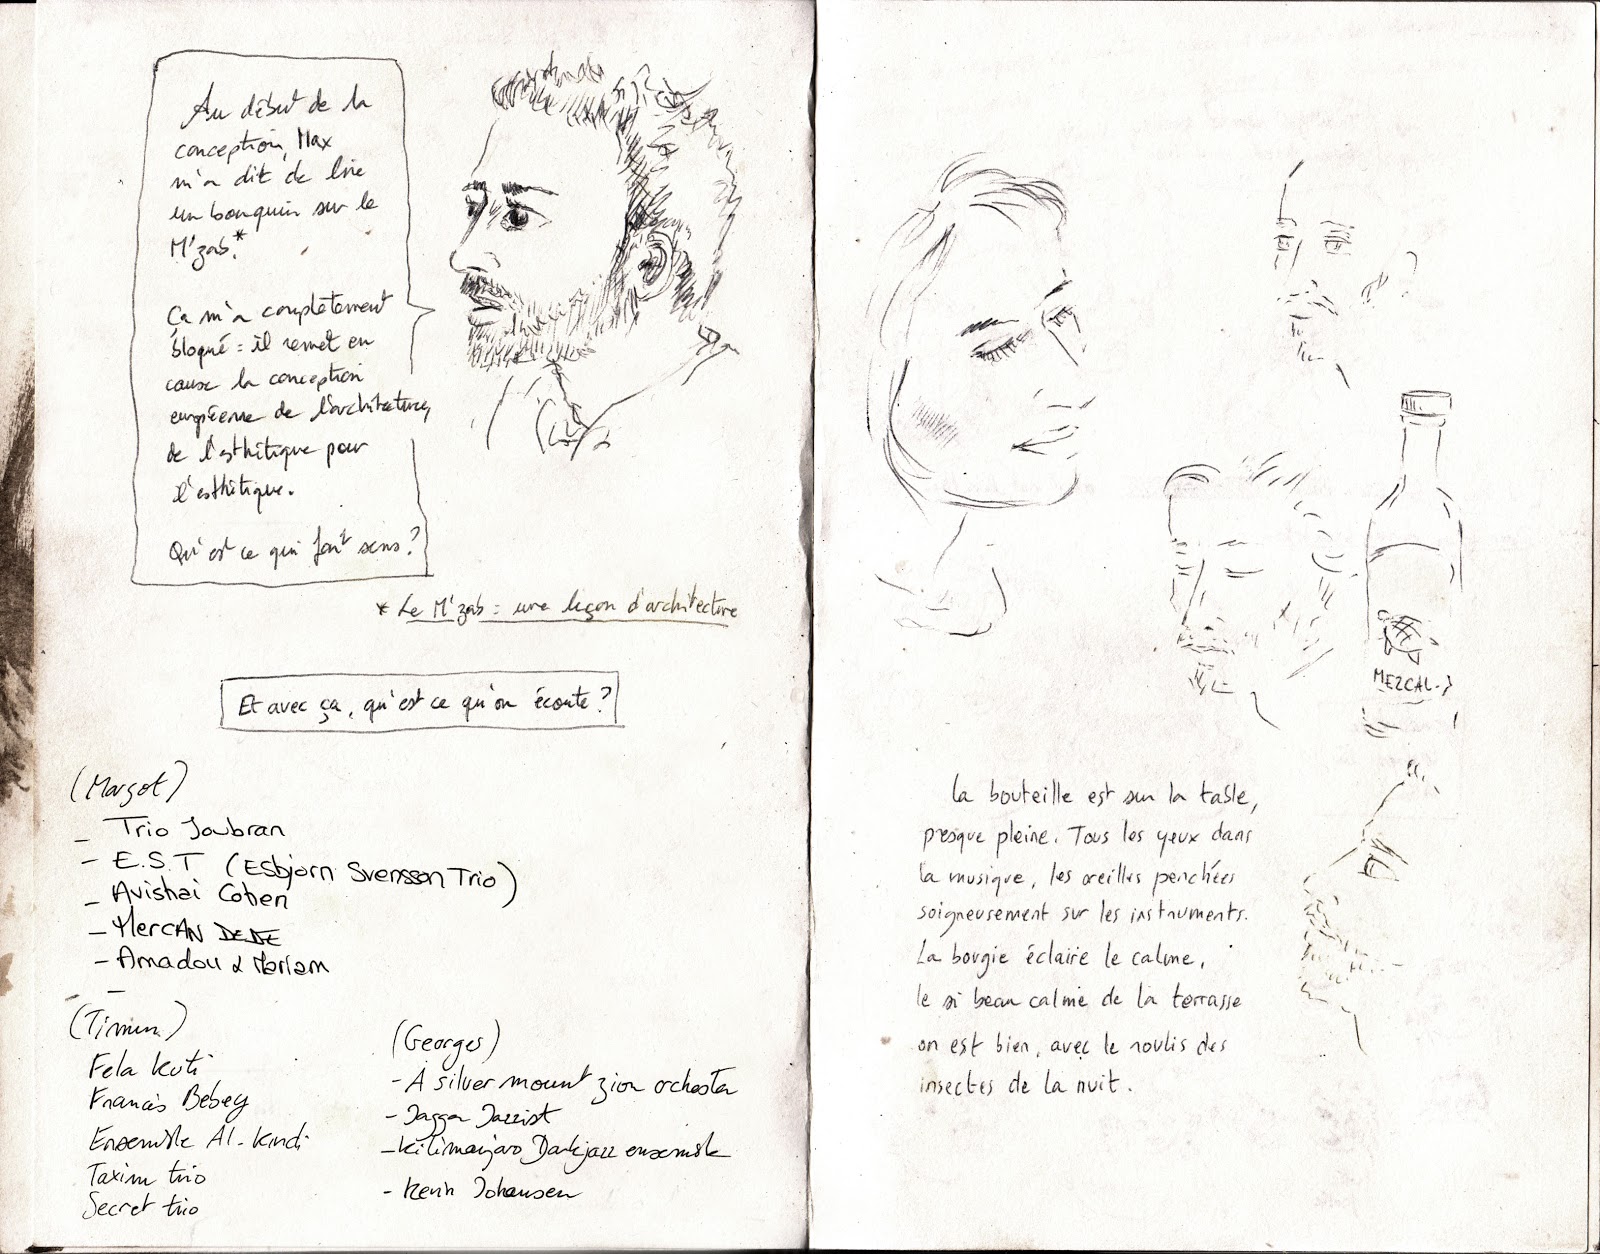 Au début de la
conception, Max
m'a dit de lire
un bouquin sur le
M'zab.*
Ça m'a complètement
bloqué : il remet en
cause la conception
européenne de l'architecture,
de l'esthétique pour
l'esthétique.
Qu'est ce qui fait sens ?
* Le M'zab : une leçon d'architecture
Et avec ça, qu'est ce qu'on écoute ?
(Margot)
- Trio Joubran
- E.S.T (Esbjorn Svensson Trio)
- Avishai Cohen
- MercAN DEDE
- Amadou & Mariam
(Timun)
Fela Kuti
Francis Bebey
Ensemble Al-Kindi
Taxim trio
Secret trio
(Georges)
- A silver mount zion orchestra
- Jagga Jazzist
- Kilimanjaro Darkjazz ensemble
- Kevin Johansen
MEZCAL
La bouteille est sur la table,
presque pleine. Tous les yeux dans
la musique, les oreilles penchées
soigneusement sur les instruments.
La bougie éclaire le calme,
le si beau calme de la terrasse
on est bien, avec le roulis des
insectes de la nuit.